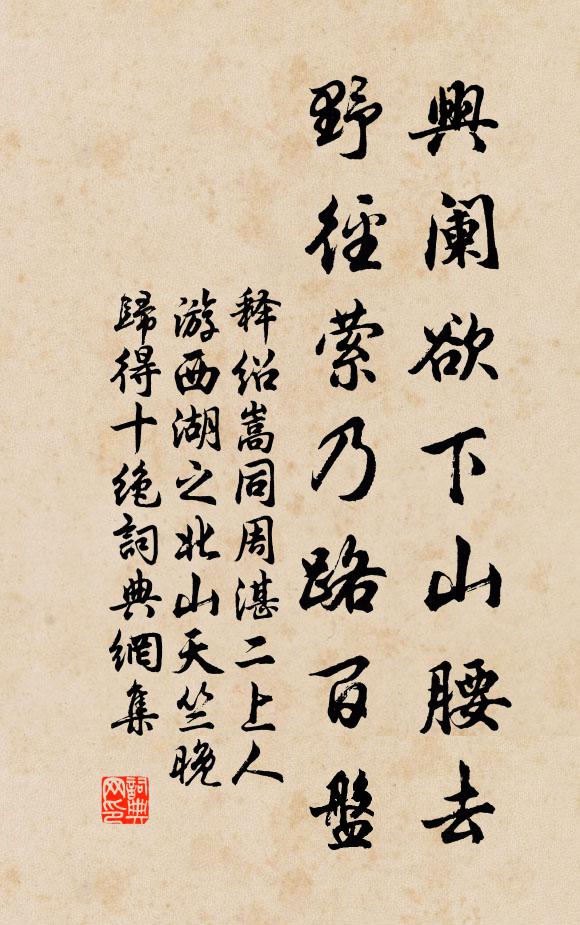 興阑欲下山腰去
野徑萦乃路百盤
释绍嵩同周湛二上人
游西湖之北山天竺晚
歸得十绝詞典網集
詞典网印